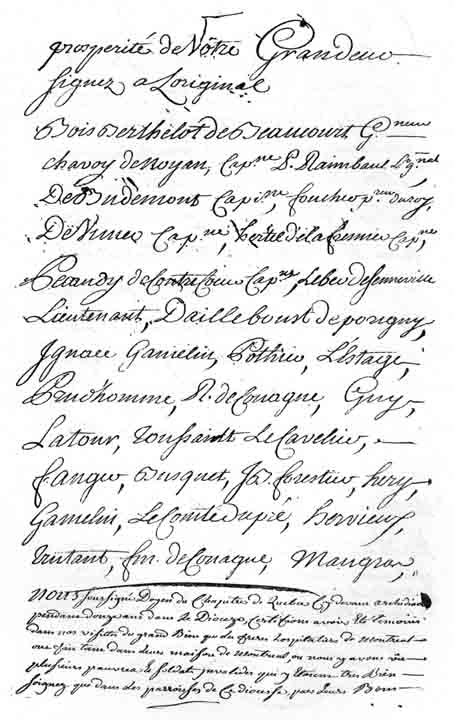 prosperité de Vôtre Grandeur
signez a L'original
Bois Berthelot de Beaucourt G.neur
chavoy de Noyan, Cap.ne P. Raimbault
De Budemont Cap.ne, foucher p.r du roy,
De Muner Cap.ne, hertel de la fresniere Cap.ne,
Pecaudy de Contrecoeur Cap.ne, Leber de Senneville
Lieutenant, Daillebourt de perigny,
Ignace Gamelin, Pothier, L'Estage,
Prudhomme, R. de Couagne, Guy,
Latour, Toussaint Le Cavelier,
f. auger, Busquet, JB. forestier, hery,
Gamelin, Le Comte dupré, hervieux,
trutant, fm. de Couagne, Maugras,
Nous soussigné Doyen du Chapitre de Quebec Cy devant archidiacre
pendant douze ans dans le Diocèze, Certifions avoir Eté temoin
dans nos visittes du grand Bien que du freres hospitaliers de Montreal
dans leurs maison de Montreal, ou nous y avons vû
plusieurs pauvres et soldats invalides qui y étoient tres Bien
Soignez que dans les parroisses de Ce diocesse, par leurs Bons